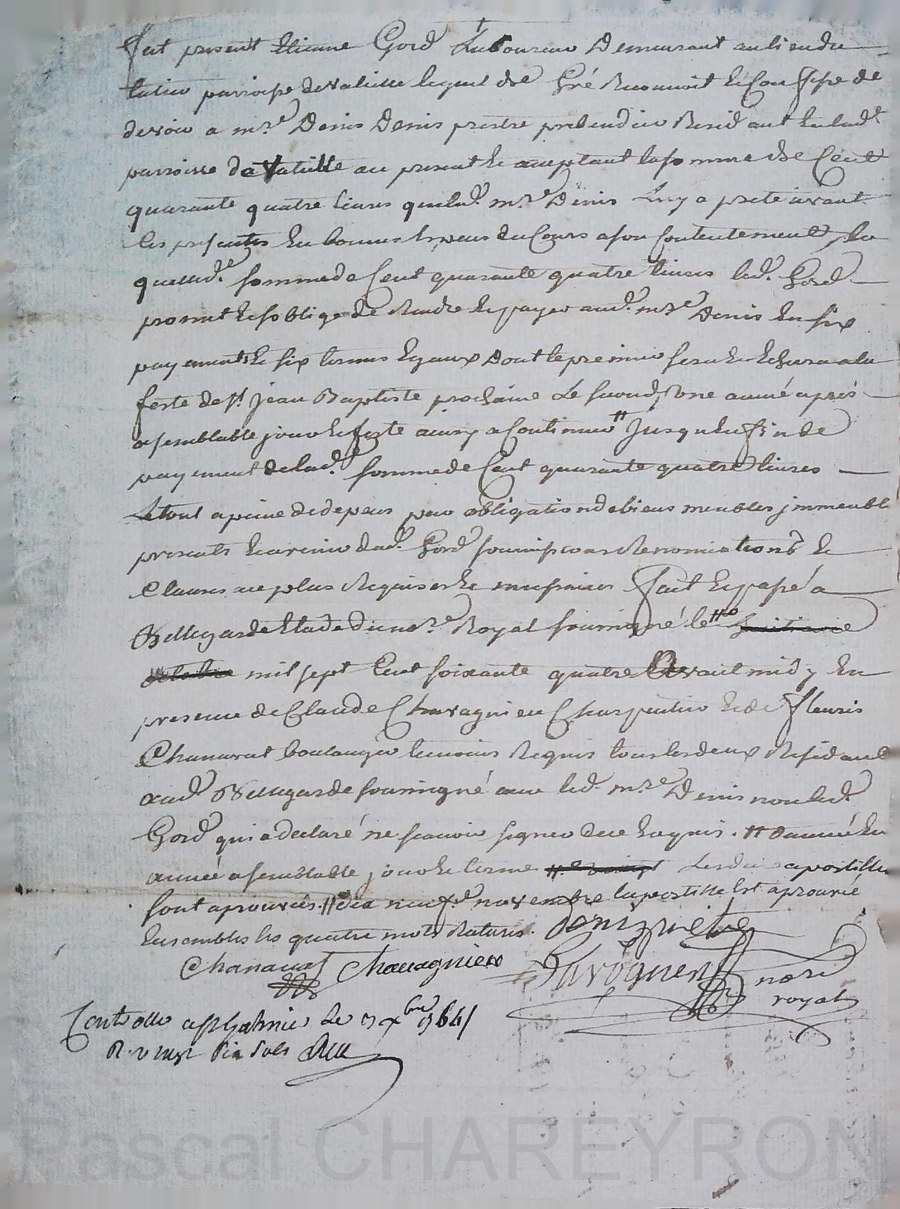 fut present Etienne Gord Laboureur Demeurant au lieu du
parroisse de valeille lequel de Gré Reconnoit Et Confesse de
devoir a mre Denis Denis prestre prebendier Residant en lad.
parroisse de Valeille au present Et aceptant la somme de Cent
quarante quatre livres que led. mre Denis Luy a preté avant
les presentes En bonnes Especes du Cours a son Contentement, la
quelle d. somme de Cent quarante quatre livres led. Gord
promet Et soblige de Rendre Et payer aud. mre Denis En six
payements Et six termes Egaux Dont le premier sera Et Echera a la
feste de St. jean Baptiste prochaine Le second une année après
a semblable jour Et feste ainsy a Continuer # Jusqu'En fin de
payement de lad. somme de Cent quarante quatre livres
Le tout a peine de depens par obligation de biens meubles jmmeubles
presents Et avenir dud. Gord soumissions Renonciations Et
Clauses au plus Requises Et necessaires fait Et passé a
Bellegarde Etude du nore Royal soussigné le #
mil sept Cent soixante quatre avant midy En
presence de Claude Chavagnieu Charpentier Et de fleuris
Chanavat boulanger temoins Requis tous les deux Residant
aud. Bellegarde soussigné avec led. mre Denis non led.
Gord qui a declaré ne scavoir signer de ce Enquis. # d'année En
année a semblable jour Et terme Lesd. apostilles
sont aprouvés. # dix neufe novembre lapostille Est aprouvé
Ensembles les quatre mots Raturés. Denis prêtre
Chanavat Chavagnieu
nore
royal
Controllé a St Galmier Le 3 xbre 1764
R. vingt six sols
Pascal CHAREYRON